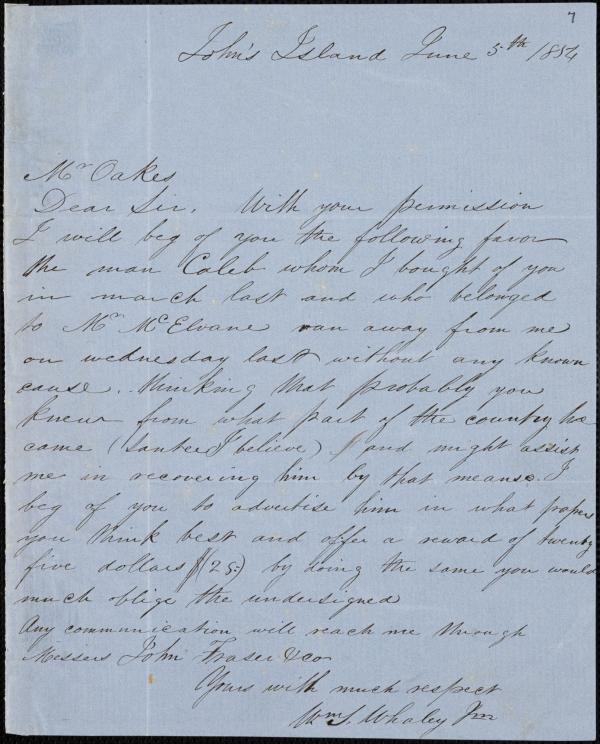 7
John's Island June 5th 1854
Mr Oakes
Dear Sir. With your permission
I will beg of you the following favor
the man Caleb whom I bought of you
in march last and who belonged
to Mr McElvane ran away from me
on wednesday last without any known
cause. thinking that probably you
knew from what part of the country he
came (Santee I believe) and might assist
me in recovering him by that means. I
beg of you to advertise him in what papers
you think best and offer a reward of twenty
five dollars (25-) by doing the same you would
much oblige the undersigned
Any communication will reach me through
Messers John Fraser & co
Yours with much respect
Wm S. Whaley Jnr